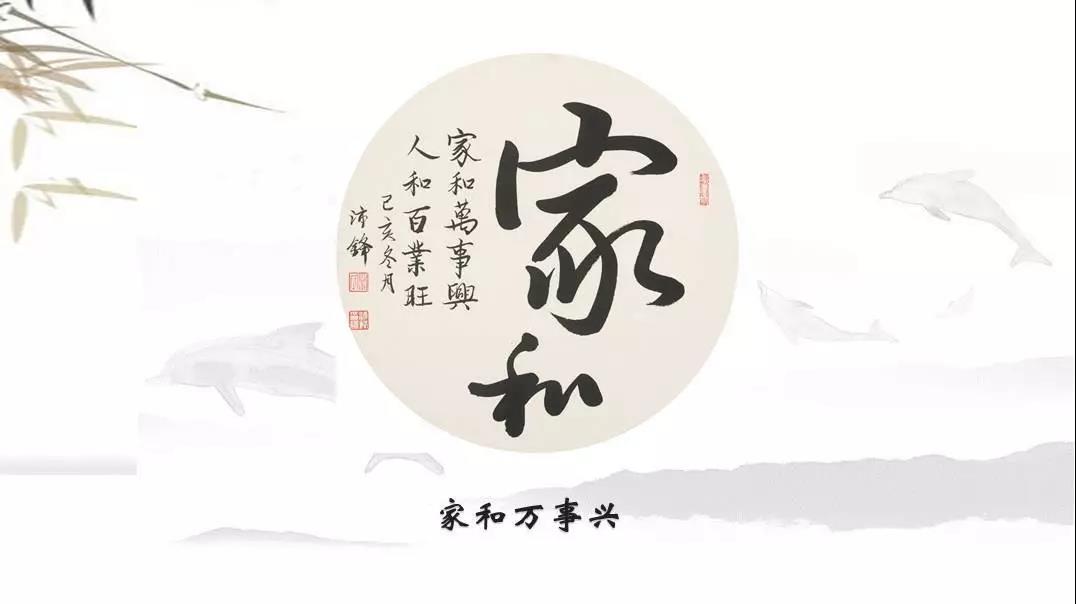 家和
家和萬事興
人和百業旺
己亥冬月
沛鋒
家和万事兴